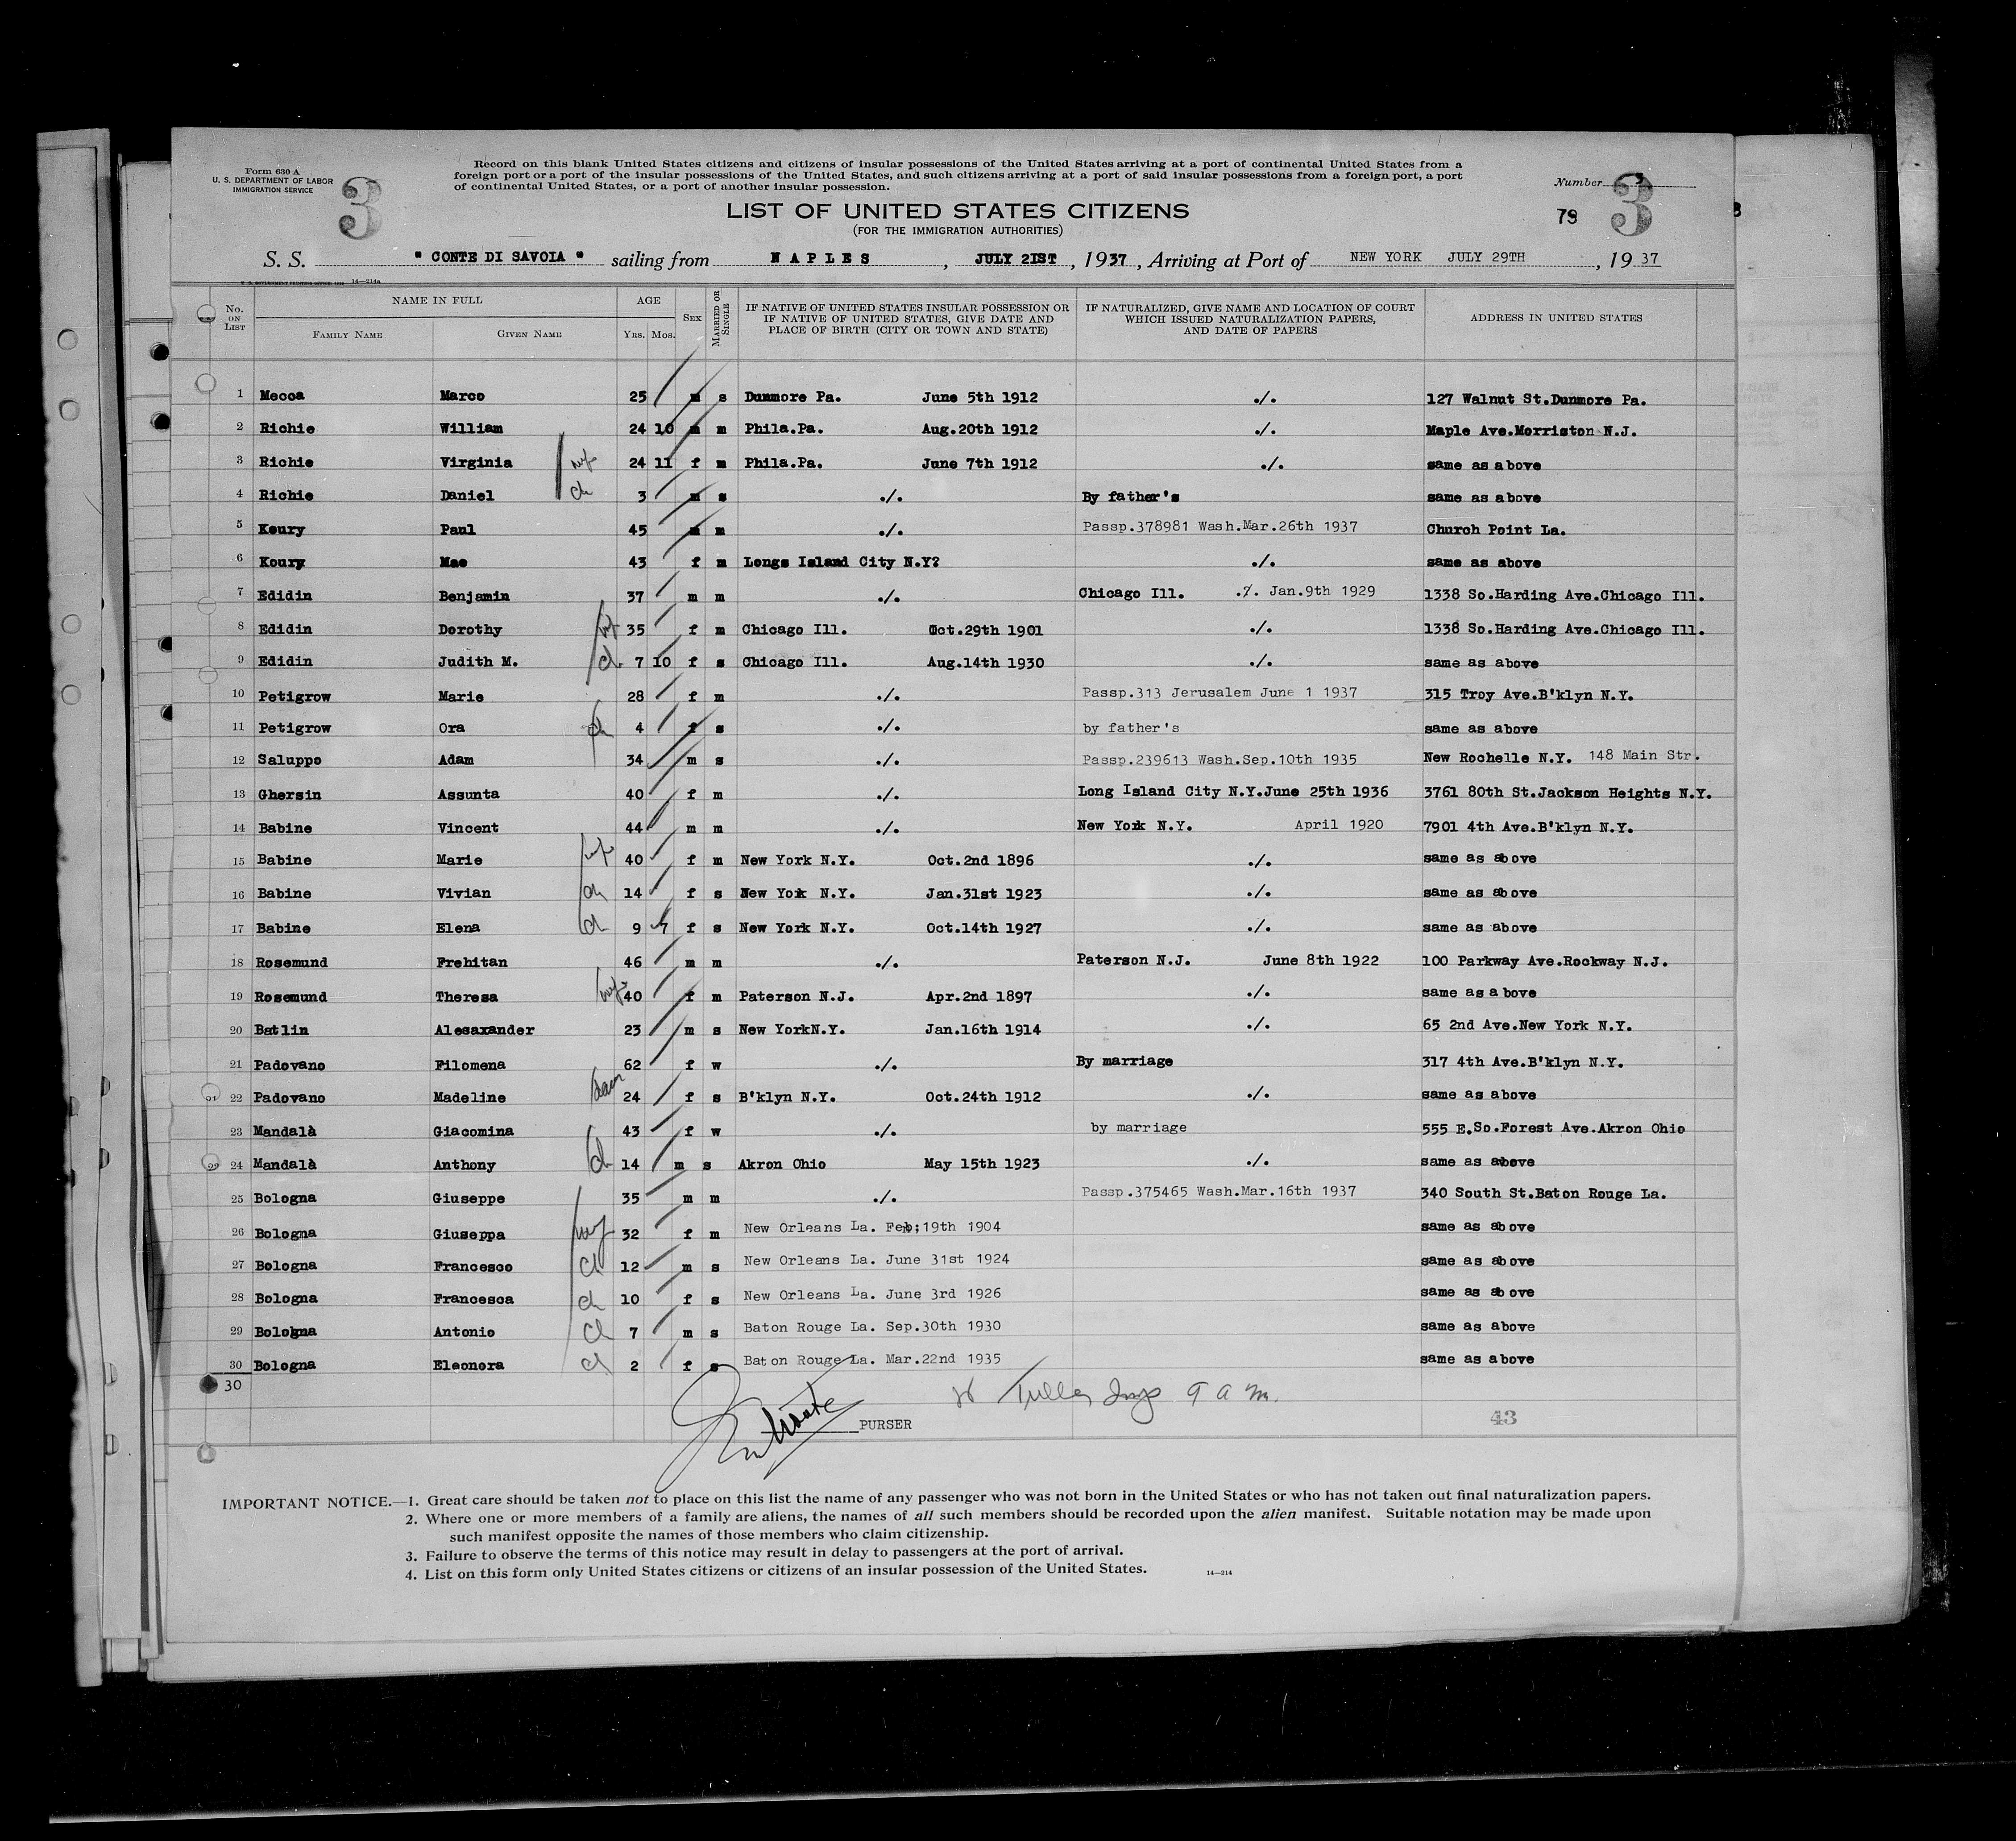 Form 630 A
U. S. DEPARTMENT OF LABOR
IMMIGRATION SERVICE
3
Record on this blank United States citizens and citizens of insular possessions of the United States arriving at a port of continental United States from a
foreign port or a port of the insular possessions of the United States, and such citizens arriving at a port of said insular possessions from a foreign port, a port
of continental United States, or a port of another insular possession.
Number 3
3
LIST OF UNITED STATES CITIZENS
(FOR THE IMMIGRATION AUTHORITIES)
S. S. " CONTE DI SAVOIA " sailing from N A P L E S , JULY 21ST , 1937 , Arriving at Port of NEW YORK JULY 29TH , 19 37
14—214a
No. ON LIST NAME IN FULL AGE SEX MARRIED OR SINGLE IF NATIVE OF UNITED STATES INSULAR POSSESSION OR IF NATIVE OF UNITED STATES, GIVE DATE AND PLACE OF BIRTH (CITY OR TOWN AND STATE) IF NATURALIZED, GIVE NAME AND LOCATION OF COURT WHICH ISSUED NATURALIZATION PAPERS, AND DATE OF PAPERS ADDRESS IN UNITED STATES
FAMILY NAME GIVEN NAME YRS. MOS.
1 Mecca Marco 25 m s Dunmore Pa. June 5th 1912 ./. 127 Walnut St.Dunmore Pa.
2 Richie William 24 10 m m Phila.Pa. Aug.20th 1912 ./. Maple Ave.Morriston N.J.
3 Richie Virginia wf 24 11 f m Phila.Pa. June 7th 1912 ./. same as above
4 Richie Daniel ch 3 m s ./. By father's same as above
5 Koury Paul 45 m m ./. Passp.378981 Wash.Mar.26th 1937 Church Point La.
6 Koury Mae 43 f m Longs Island City N.Y? ./. same as above
7 Edidin Benjamin 37 m m ./. Chicago Ill. ./. Jan.9th 1929 1338 So.Harding Ave.Chicago Ill.
8 Edidin Dorothy wf 35 f m Chicago Ill. Oct.29th 1901 ./. 1338 So.Harding Ave.Chicago Ill.
9 Edidin Judith M. ch 7 10 f s Chicago Ill. Aug.14th 1930 ./. same as above
10 Petigrow Marie 28 f m ./. Passp.313 Jerusalem June 1 1937 315 Troy Ave.B'klyn N.Y.
11 Petigrow Ora ch 4 f s ./. by father's same as above
12 Saluppo Adam 34 m s ./. Passp.239613 Wash.Sep.10th 1935 New Rochelle N.Y. 148 Main Str.
13 Ghersin Assunta 40 f m ./. Long Island City N.Y.June 25th 1936 3761 80th St.Jackson Heights N.Y.
14 Babine Vincent 44 m m ./. New York N.Y. April 1920 7901 4th Ave.B'klyn N.Y.
15 Babine Marie wf 40 f m New York N.Y. Oct.2nd 1896 ./. same as above
16 Babine Vivian ch 14 f s New York N.Y. Jan.31st 1923 ./. same as above
17 Babine Elena ch 9 7 f s New York N.Y. Oct.14th 1927 ./. same as above
18 Rosemund Frehitan 46 m m ./. Paterson N.J. June 8th 1922 100 Parkway Ave.Rockway N.J.
19 Rosemund Theresa wf 40 f m Paterson N.J. Apr.2nd 1897 ./. same as above
20 Batlin Alesaxander 23 m s New YorkN.Y. Jan.16th 1914 ./. 65 2nd Ave.New York N.Y.
21 Padovano Filomena 62 f w ./. By marriage 317 4th Ave.B'klyn N.Y.
22 Padovano Madeline dau 24 f s B'klyn N.Y. Oct.24th 1912 ./. same as above
23 Mandalà Giacomina 43 f w ./. by marriage 555 E.So.Forest Ave.Akron Ohio
24 Mandalà Anthony ch 14 m s Akron Ohio May 15th 1923 ./. same as above
25 Bologna Giuseppe 35 m m ./. Passp.375465 Wash.Mar.16th 1937 340 South St.Baton Rouge La.
26 Bologna Giuseppa wf 32 f m New Orleans La. Feb;19th 1904 same as above
27 Bologna Francesco ch 12 m s New Orleans La. June 31st 1924 same as above
28 Bologna Francesca ch 10 f s New Orleans La. June 3rd 1926 same as above
29 Bologna Antonio ch 7 m s Baton Rouge La. Sep.30th 1930 same as above
30 Bologna Eleonora ch 2 f s Baton Rouge La. Mar.22nd 1935 same as above
30
PURSER
43
IMPORTANT NOTICE.—1. Great care should be taken not to place on this list the name of any passenger who was not born in the United States or who has not taken out final naturalization papers.
2. Where one or more members of a family are aliens, the names of all such members should be recorded upon the alien manifest. Suitable notation may be made upon
such manifest opposite the names of those members who claim citizenship.
3. Failure to observe the terms of this notice may result in delay to passengers at the port of arrival.
4. List on this form only United States citizens or citizens of an insular possession of the United States.
14—214